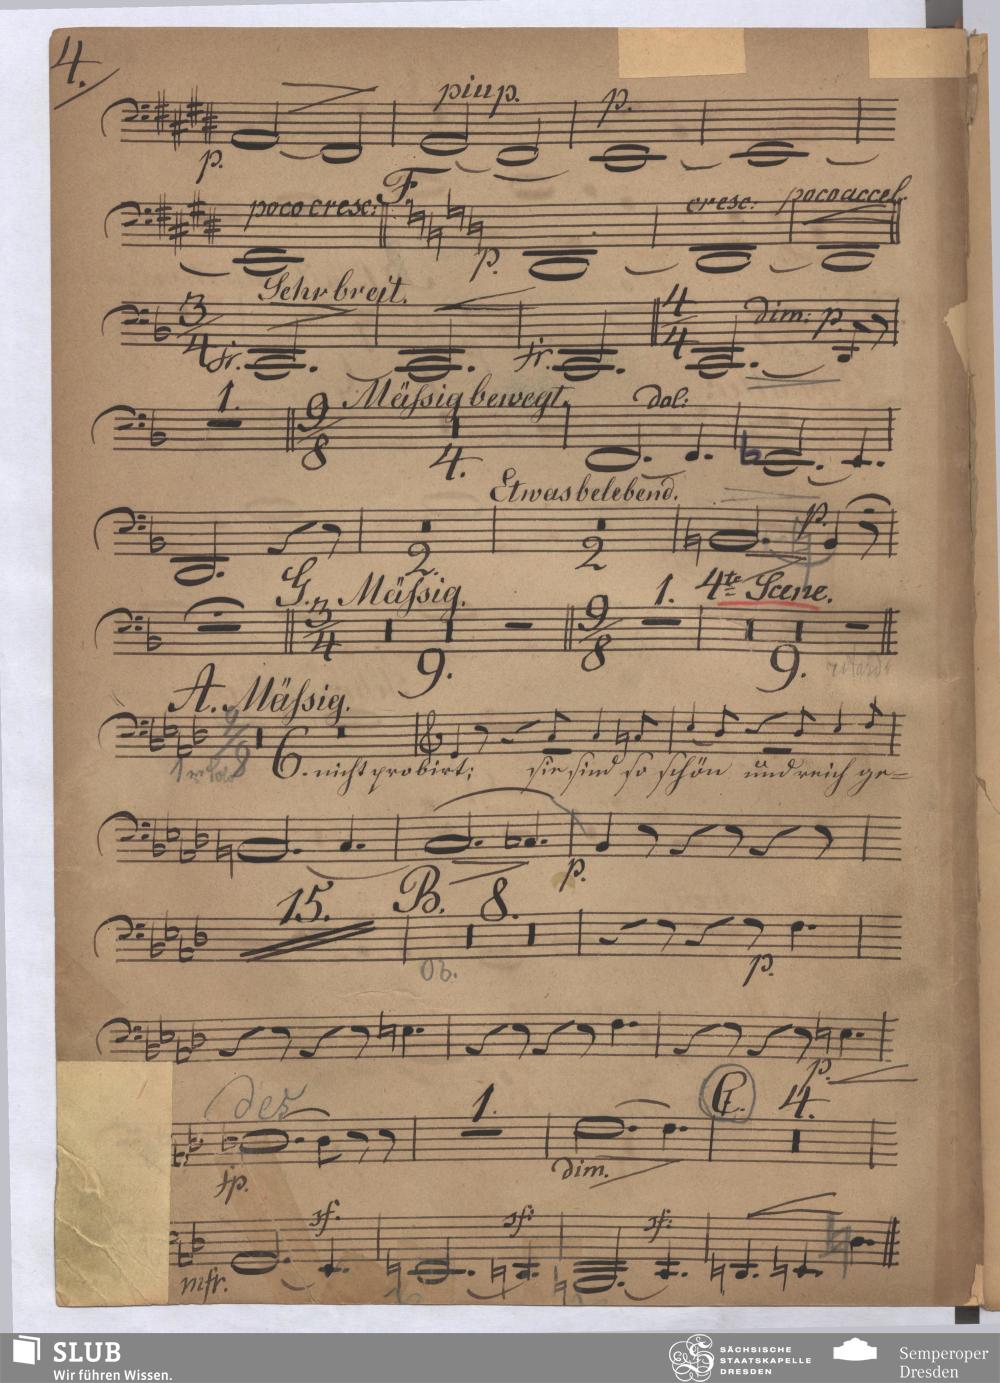 4.
piu p. p.
p.
F
poco cresc: cresc: poco accel.
p.
Sehr breit.
3/4 4/4 dim: p.
fr. fr.
1. 9/8 Mässig bewegt. dol:
4.
Etwas belebend.
p.
2. 2
G. Mässig. 1. 4te Scene.
3/4 9/8
9. 9.
A. Mässig.
9/8
6. nicht probirt; sie sind so schön und reich ge=
p.
15. B. 8.
Ob.
p.
p.
des 1. C. 4.
fp. dim.
sf. sf: sf:
mfr.
SLUB
Wir führen Wissen.
SÄCHSISCHE
STAATSKAPELLE
DRESDEN
Semperoper
Dresden